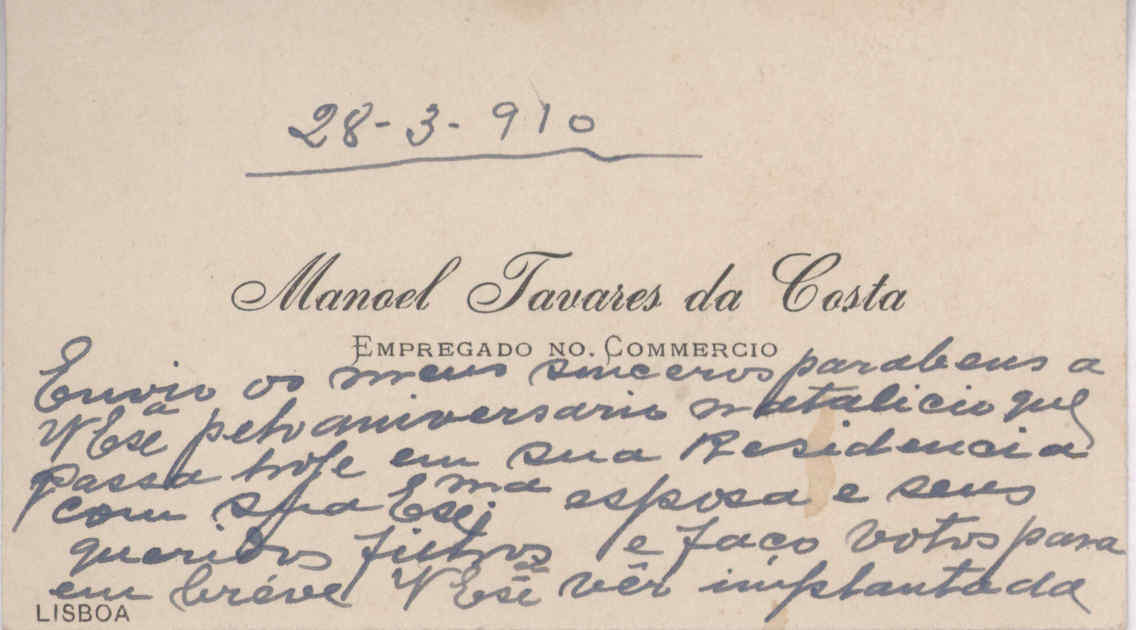 28-3-910
Manoel Tavares da Costa
EMPREGADO NO. COMMERCIO
Envio os meus sinceros parabens a
V Ese.ª pelo aniversario natalicio que
passa hoje em sua Residencia
com sua Ese.ma esposa e seus
queridos filhos e faço votos para
em bréve V Ese.ª vêr implantada
LISBOA